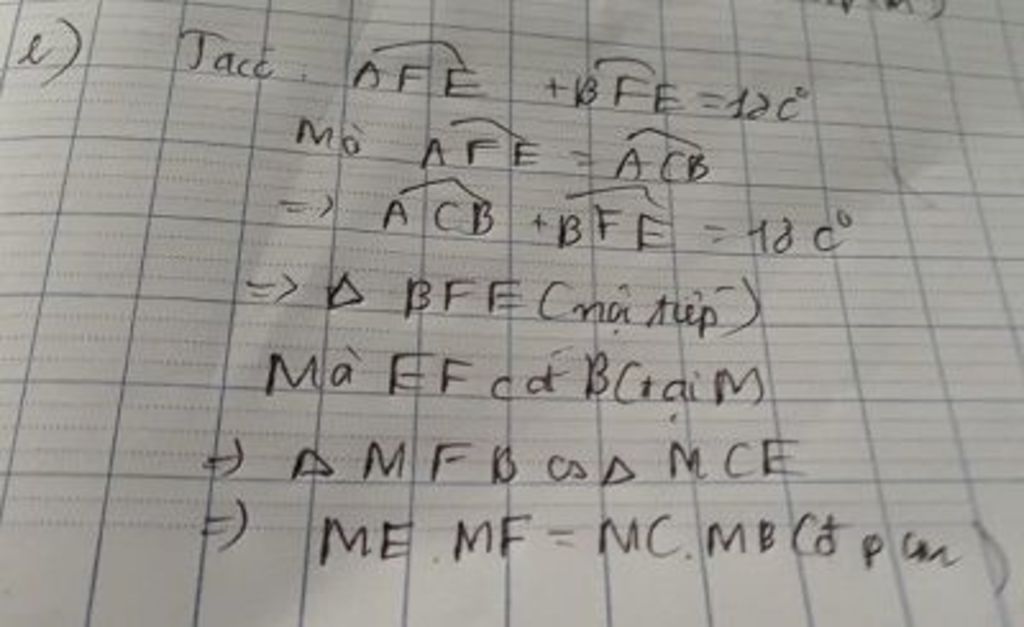 c) Ta có: AFE + BFE = 180°
Mà AFE = ACB
=> ACB + BFE = 180°
=> Δ BFE (nội tiếp)
Mà EF cắt BC tại M
=> Δ MFB ∽ Δ MCE
=> ME . MF = MC . MB (đpcm)